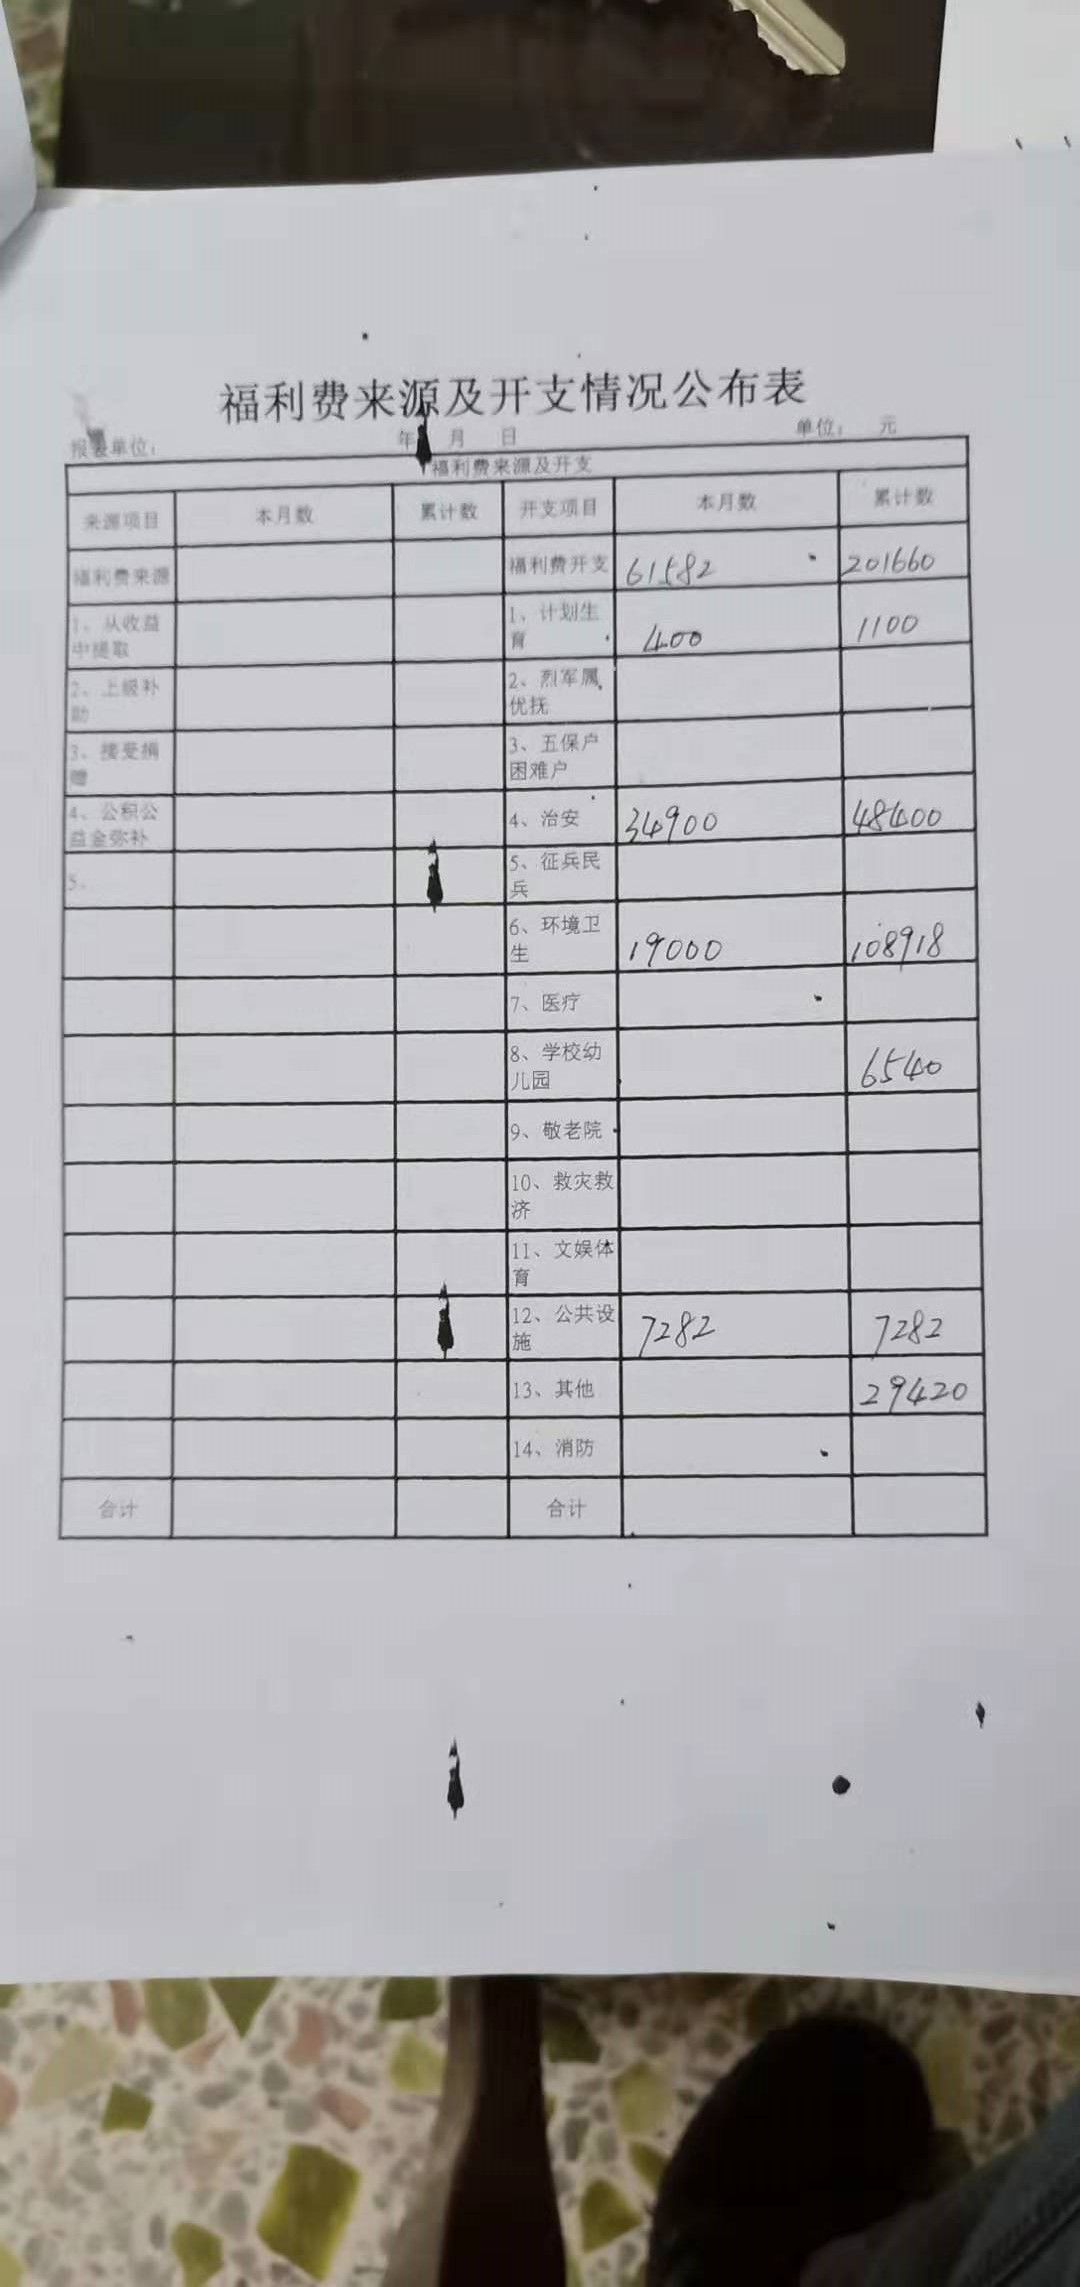 福利费来源及开支情况公布表
报表单位： 年 月 日 单位： 元
福利费来源及开支
来源项目 本月数 累计数 开支项目 本月数 累计数
福利费来源 福利费开支 61582 201660
1、从收益中提取 1、计划生育 400 1100
2、上级补助 2、烈军属优抚
3、接受捐赠 3、五保户困难户
4、公积公益金弥补 4、治安 34900 48400
5、 5、征兵民兵
6、环境卫生 19000 108918
7、医疗
8、学校幼儿园 6540
9、敬老院
10、救灾救济
11、文娱体育
12、公共设施 7282 7282
13、其他 29420
14、消防
合计 合计